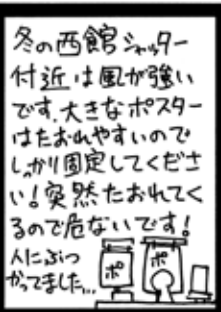 冬の西館シャッター
付近は風が強い
です。大きなポスター
はたおれやすいので
しっかり固定してくださ
い!突然たおれてく
るので危ないです!
人にぶつ
かってました…
ポ
ポ